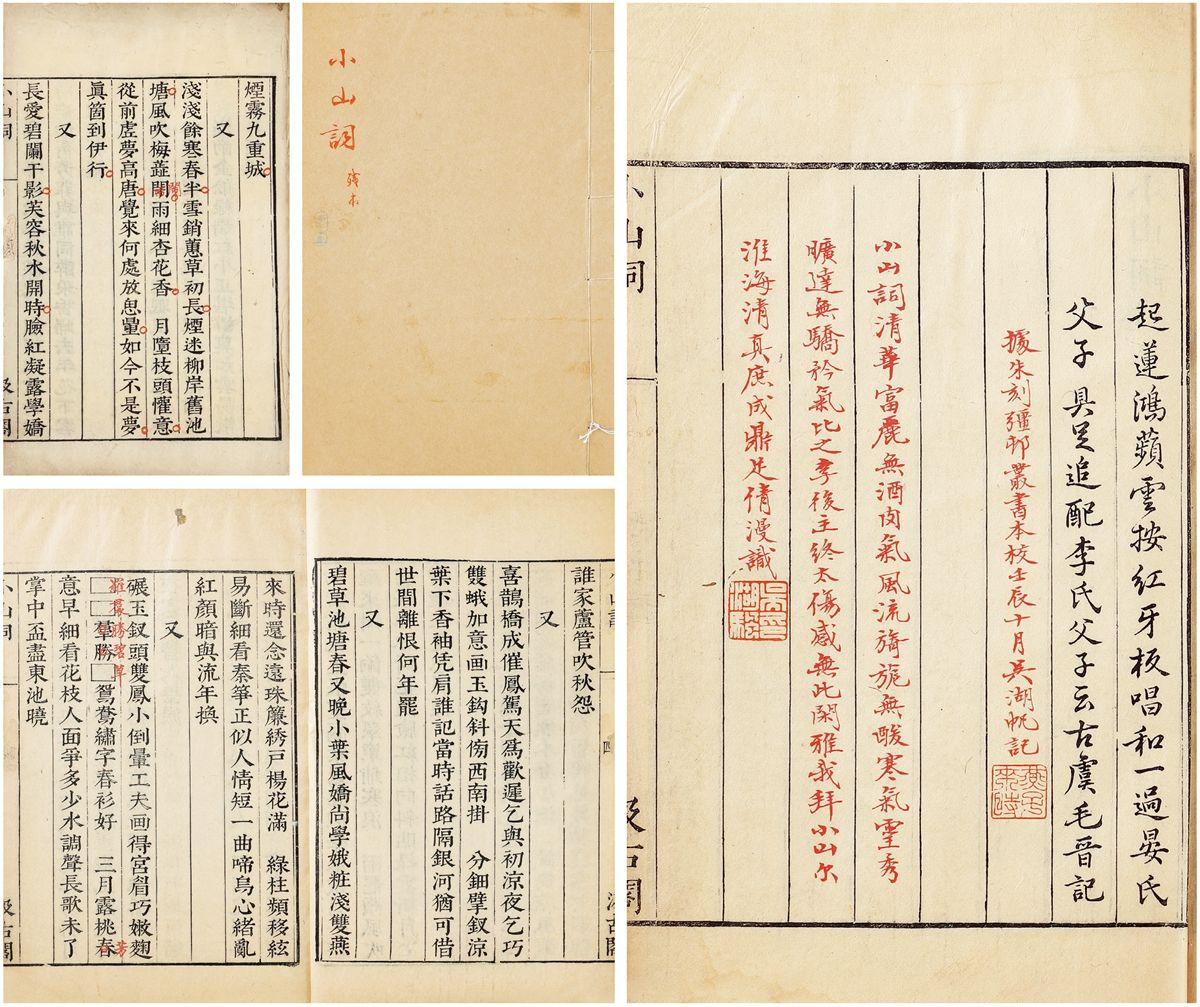 煙霧九重城
又
淺淺餘寒春半雪銷蕙草初長煙迷柳岸舊池
塘風吹梅蘂鬧雨細杏花香　月墮枝頭懽意
從前虛夢高唐覺來何處放思量如今不是夢
眞箇到伊行
又
長愛碧闌干影芙容秋水開時臉紅凝露學嬌
小山詞
汲古閣
小山詞
殘本
起蓮鴻蘋雲按紅牙板唱和一過晏氏
父子具足追配李氏父子云古虞毛晉記
據朱刻彊邨叢書本校壬辰十月吳湖帆記
小山詞清華富麗無酒肉氣風流旖旎無酸寒氣靈秀
曠達無驕矜氣比之李後主終太傷感無此閑雅我拜小山尔
淮海清真庶成鼎足倩漫識
小山詞
汲古閣
誰家蘆管吹秋怨
又
喜鵲橋成催鳳駕天爲歡遲乞與初涼夜乞巧
雙蛾加意画玉鈎斜傍西南掛　分鈿擘釵涼
葉下香袖凭肩誰記當時話路隔銀河猶可借
世間離恨何年罷
又
碧草池塘春又晚小葉風嬌尙學娥粧淺雙燕
來時還念遠珠簾綉戸楊花滿　綠柱頻移絃
易斷細看秦箏正似人情短一曲啼烏心緒亂
紅顏暗與流年換
又
碾玉釵頭雙鳳小倒暈工夫画得宮眉巧嫩麴
羅裙勝碧草
□□□勝□鴛鴦繡字春衫好　三月露桃春
芳
意早細看花枝人面爭多少水調聲長歌未了
掌中盃盡東池曉
小山詞
汲古閣